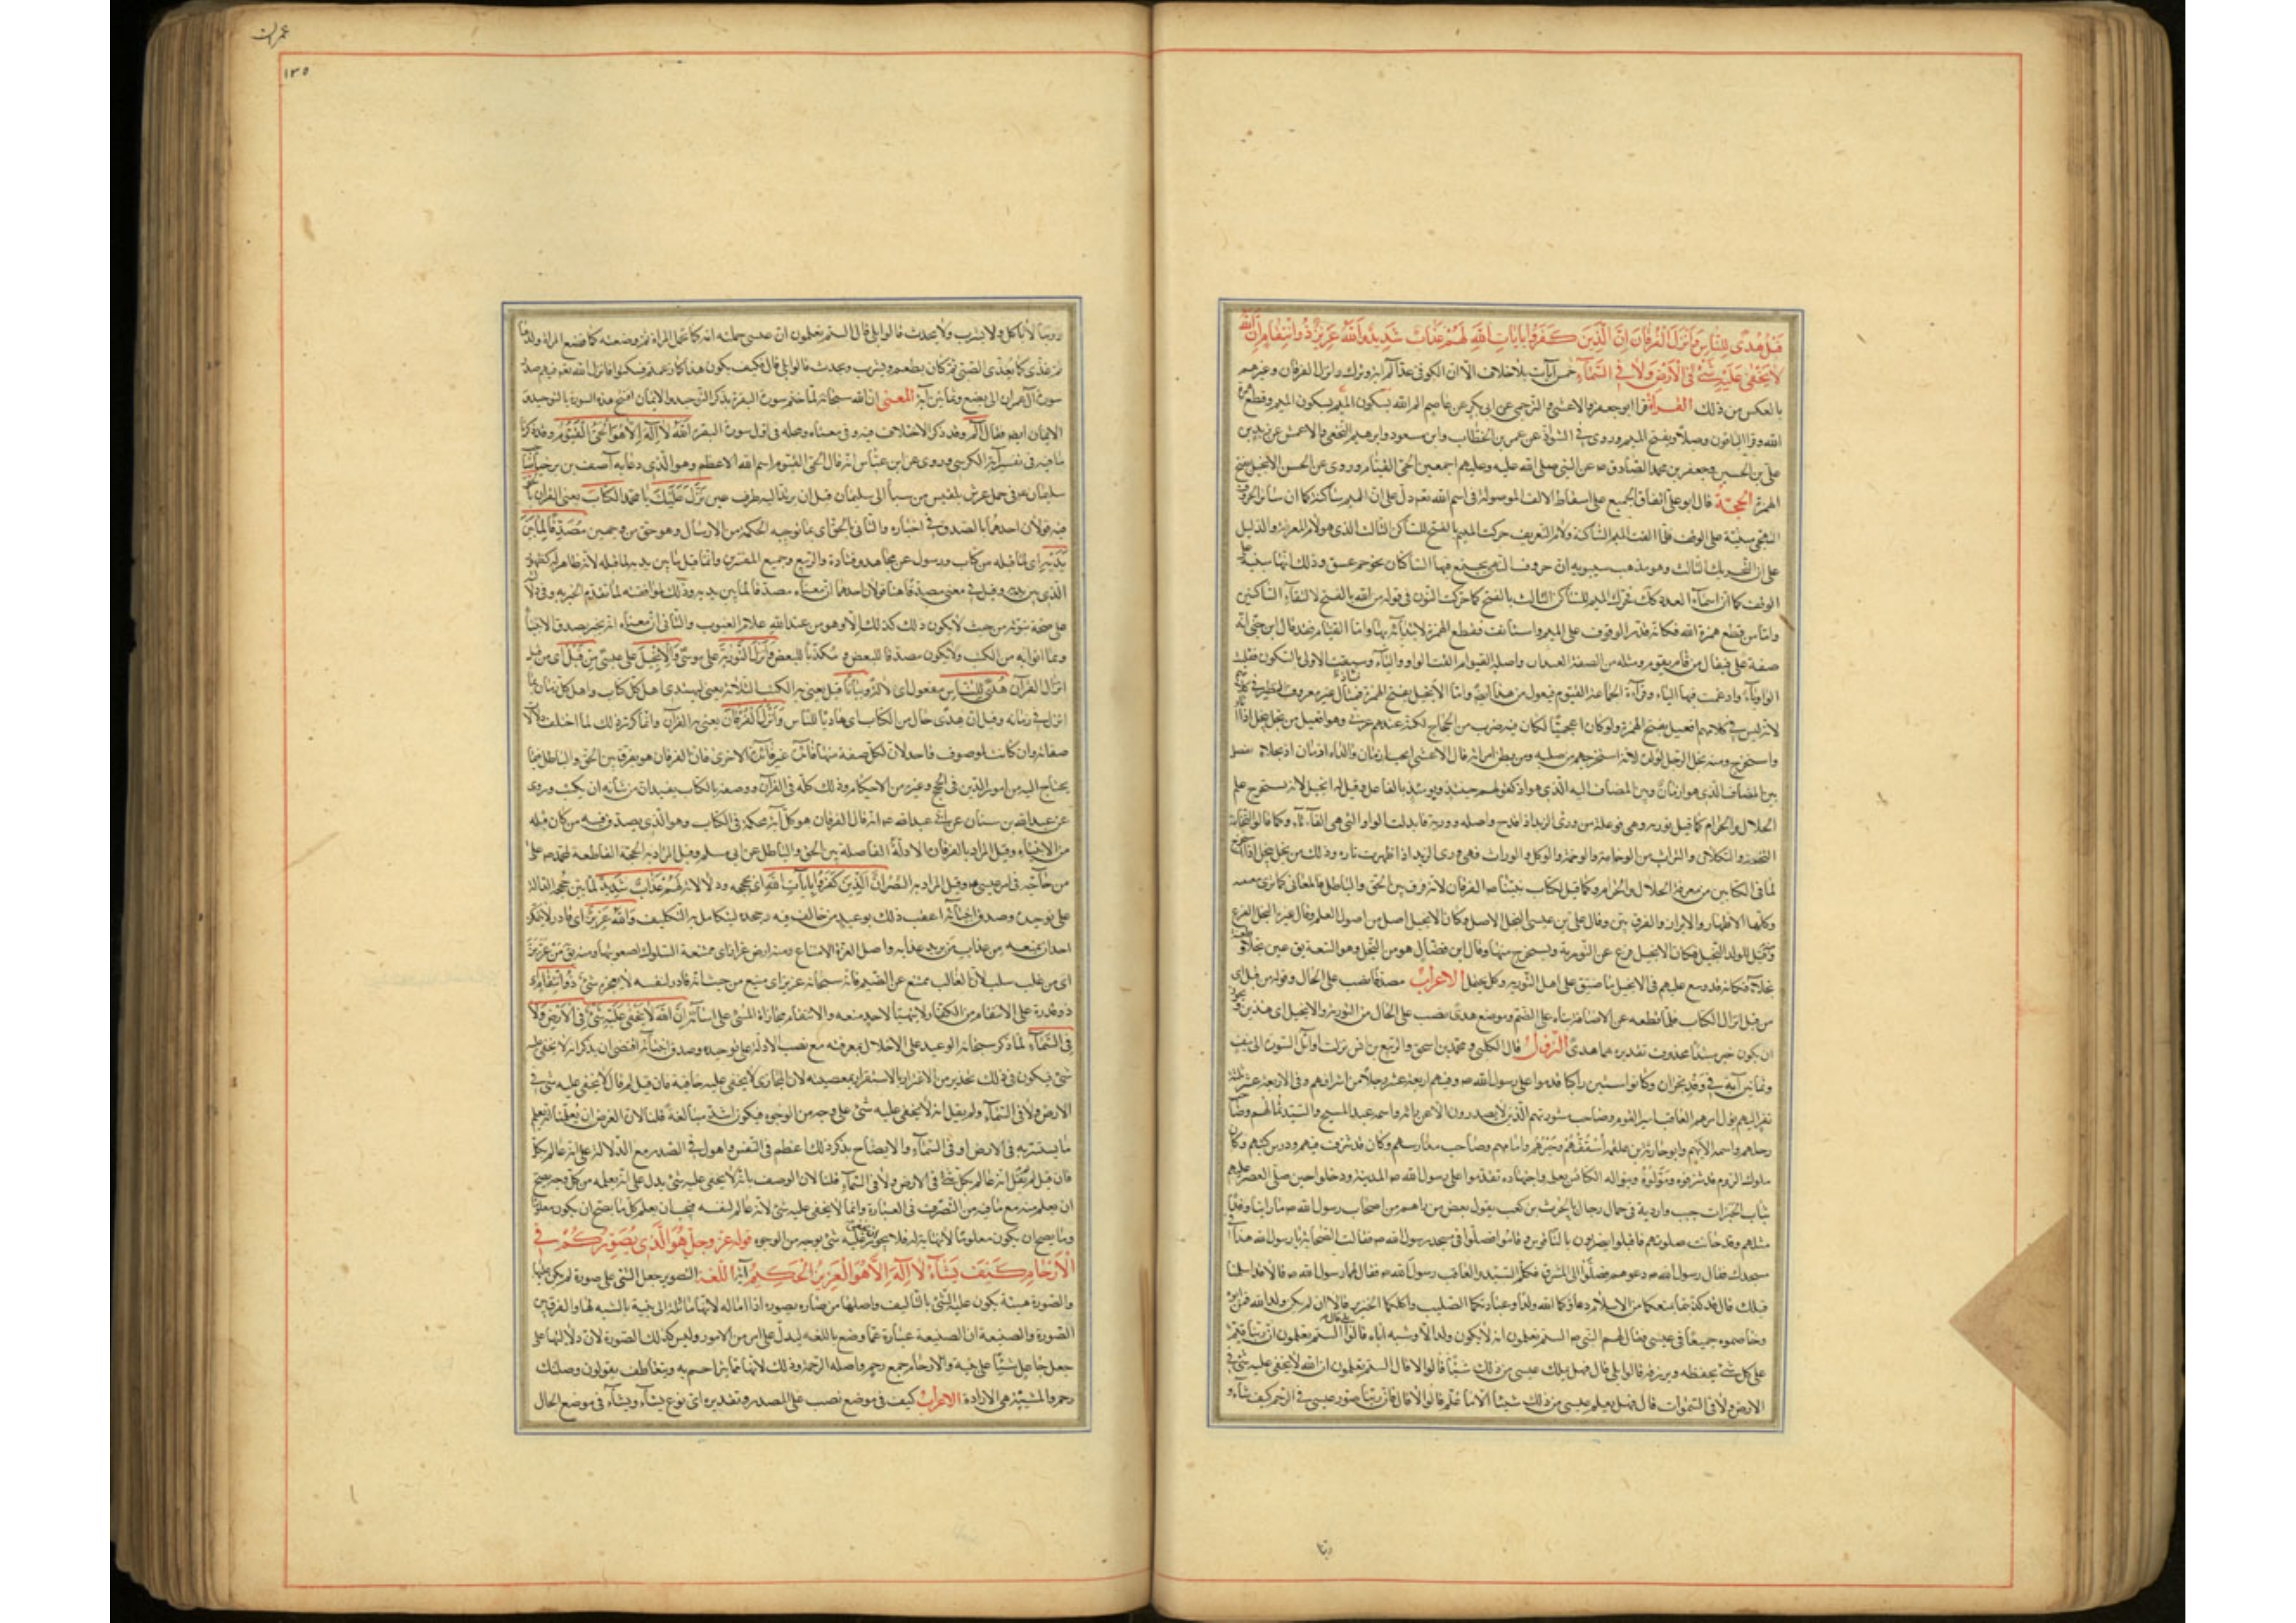 قبل هدى للناس وانزل الفرقان ان الذين كفروا بايات الله لهم عذاب شديد والله عزيز ذو انتقام ان الله
لا يخفى عليه شئ فى الارض ولا فى السماء خمس آيات بلا خلاف الا ان الكوفى عد الم آية وترك وانزل الفرقان وغيرهم
بالعكس من ذلك القراءة قرا ابو جعفر والاعشى والبرجمى عن ابى بكر عن عاصم الم الله بسكون الميم وقطع همزة
الله وقرا الباقون وصلا وبفتح الميم وروى فى الشواذ عن عمر بن الخطاب وابن مسعود وابرهيم النخعى والاعمش عن زيد بن
على بن الحسين وجعفر بن محمد الصادق ص عن النبى صلى الله عليه وعليهم اجمعين الحى القيام وروى عن الحسن الانجيل بفتح
الهمزة الحجة قال ابو على اتفاق الجميع على اسقاط الالف الموصولة فى اسم الله تعم دل على ان الميم ساكنة كما ان سائر الحروف
التهجى مبنية على الوقف فلما التقت الميم الساكنة ولام التعريف حركت الميم بالفتح للساكن الثالث الذى هو لام المعرفة والدليل
على ان التحريك لثالث وهو مذهب سيبويه ان حروف التهجى يجتمع فيها الساكنان نحو حم عسق وذلك انها مبنية على
الوقف كما ان اسماء العدد كذلك فحركت الميم للساكن الثالث بالفتح كما حركت النون فى قوله من الله بالفتح لالتقاء الساكنين
واما من قطع همزة الله فكانه قدر الوقوف على الميم واستأنف فقطع الهمزة لابتدائه بها واما القيام فقد قال ابن جنى انه
صفة على فيعال من قام يقوم ومثله من الصفة الغيداق واصله القيوام التقت الواو والياء وسبقت الاولى بالسكون فقلبت
الواو ياء وادغمت فيها الياء وقراءة الجماعة القيوم فيعول من هذا ايضا واما الانجيل بفتح الهمزة فمثال غير معروف النظير فى كلامهم
لانه ليس فى كلامهم افعيل بفتح الهمزة ولو كان اعجميا لكان فيه ضرب من الحجاج لكنه عندهم عربى وهو افعيل من نجل ينجل اذا اثار
واستخرج ومنه نجل الرجل لولده لانه استخرجهم من صلبه ومن بطن امراته قال الاعشى انجب ازمان والداه اذ نجلاه ففصل
بين المضاف الذى هو ازمان وبين المضاف اليه الذى هو اذ بالفاعل وقيل له انجيل لانه يستخرج علم
الحلال والحرام كما قيل تورية وهى فوعلة من ورى الزند اذا قدح واصله وورية فابدلت الواو التى هى الفاء تاء وكما قالوا التجاه
التخمة والتكلان والتراث من الوخامة والوكل والوراث فهى من ورى الزند اذا ظهرت ناره وذلك من نجل ينجل اذا استخرج
لما فى الكتابين من معرفة الحلال والحرام وكما قيل لكتاب نبينا ص الفرقان لانه فرق بين الحق والباطل فالمعانى كما ترى معتنقة
وكلها الاظهار والابراز والفرق بين وقال على بن عيسى النجل الاصل وكان الانجيل اصل من اصول العلم وقال غيره النجل الفرع
ومنه قيل للولد النجل فكان الانجيل فرع عن التورية ويستخرج منها وقال ابن فضال هو من النجل وهو السعة يق عين نجلاء وطعنة
نجلاء فكانه قد وسع عليهم فى الانجيل ما ضيق على اهل التورية وكل محتمل الاعراب مصدقا نصب على الحال وقوله من قبل اى
من قبل انزال الكتاب فلما قطعه عن الاضافة بناه على الضم وموضع هدى نصب على الحال من التورية والانجيل اى هاديين ويجوز
ان يكون خبر مبتدأ محذوف تقديره هما هدى النزول قال الكلبى ومحمد بن اسحق والربيع بن انس نزلت اوائل السورة الى نيف
وثمانين آية فى وفد نجران وكانوا ستين راكبا قدموا على رسول الله ص وفيهم اربعة عشر رجلا من اشرافهم وفى الاربعة عشر ثلثة
نفر اليهم يؤل امرهم العاقب امير القوم وصاحب مشورتهم الذين لا يصدرون الا عن رائه واسمه عبد المسيح والسيد ثمالهم وصاحب
رحلهم واسمه الايهم وابو حارثة بن علقمة اسقفهم وحبرهم وامامهم وصاحب مدارسهم وكان قد شرف فيهم ودرس كتبهم وكان
ملوك الروم قد شرفوه ومولوه وبنوا له الكنائس لعلمه واجتهاده تقدموا على رسول الله ص المدينة ودخلوا حين صلى العصر عليهم
ثياب الحبرات جبب واردية فى جمال رجال بلحرث بن كعب يقول بعض من راهم من اصحاب رسول الله ص ما راينا وفدا
مثلهم وقد حانت صلوتهم فاقبلوا يضربون بالناقوس وقاموا فصلوا فى مسجد رسول الله ص فقالت الصحابة يا رسول الله هذا فى
مسجدك فقال رسول الله ص دعوهم فصلوا الى المشرق فكلم السيد والعاقب رسول الله ص فقال لهما رسول الله ص قالا قد اسلمنا
قبلك قال كذبتما يمنعكما من الاسلام دعاؤكما لله ولدا وعبادتكما الصليب واكلكما الخنزير قالا ان لم يكن ولدا لله فمن ابوه
وخاصموه جميعا فى عيسى فقال لهم النبى ص الستم تعلمون انه لا يكون ولد الا ويشبه اباه قالوا بلى قال الستم تعلمون ان ربنا قيم
على كل شئ يحفظه ويرزقه قالوا بلى قال فهل يملك عيسى من ذلك شيئا قالوا لا قال الستم تعلمون ان الله لا يخفى عليه شئ فى
الارض ولا فى السموات قال فهل يعلم عيسى من ذلك شيئا الا ما علم قالوا لا قال فان ربنا صور عيسى فى الرحم كيف شاء و
ربنا
عمران
١٣٥
وربنا لا يأكل ولا يشرب ولا يحدث قالوا بلى قال الستم تعلمون ان عيسى حملته امه كما تحمل المراة ثم وضعته كما تضع المراة ولدها
ثم غذى كما يغذى الصبى ثم كان يطعم ويشرب ويحدث قالوا بلى قال فكيف يكون هذا كما زعمتم فسكتوا فانزل الله تعم فيهم صدر
سورة آل عمران الى بضع وثمانين آية المعنى ان الله سبحانه لما ختم سورة البقرة بذكر التوحيد والايمان افتتح هذه السورة بالتوحيد و
الايمان ايضا فقال الم وقد ذكر الاختلاف فيه وفى معناه ومحله فى اول سورة البقرة الله لا اله الا هو الحى القيوم وقد ذكرنا
ما فيه فى تفسير آية الكرسى وروى عن ابن عباس انه قال الحى القيوم اسم الله الاعظم وهو الذى دعا به آصف بن برخيا صاحب
سليمان فى حمل عرش بلقيس من سبأ الى سليمان قبل ان يرتد اليه طرفه نزل عليك يا محمد الكتاب يعنى القران بالحق
فيه قولان احدهما بالصدق فى اخباره والثانى بالحق اى بما توجبه الحكمة من الارسال وهو حق من وجهين مصدقا لما بين
يديه اى لما قبله من كتاب ورسول عن مجاهد وقتادة والربيع وجميع المفسرين وانما قيل لما بين يديه لما قبله لانه ظاهر له كظهور
الذى بين يديه وقيل فى معنى مصدقا هنا قولان احدهما ان معناه مصدقا لما بين يديه وذلك لموافقته لما تقدم الخبر به وفيه دلالة
على صحة نبوته من حيث لا يكون ذلك كذلك الا وهو من عند الله علام الغيوب والثانى ان معناه انه يخبر بصدق الانبياء
وبما اتوا به من الكتب ولا يكون مصدقا للبعض ومكذبا للبعض وانزل التورية على موسى والانجيل على عيسى من قبل اى من قبل
انزال القرآن هدى للناس مفعول له اى دلالة وبيانا قيل يعنى به الكتب الثلاثة يعنى ليهتدى اهل كل كتاب واهل كل زمان بما
انزل فى زمانه وقيل ان هدى حال من الكتاب اى هاديا للناس وانزل الفرقان يعنى به القرآن وانما كرر ذلك لما اختلف دلالات
صفاته وان كانت لموصوف واحد لان لكل صفة منها فائدة غير فائدة الاخرى فان الفرقان هو يفرق بين الحق والباطل فيما
يحتاج اليه من امور الدين فى الحج وغيره من الاحكام وذلك كله فى القرآن ووصفه بالكتاب يفيد ان من شأنه ان يكتب وروى
عن عبد الله بن سنان عن ابى عبد الله ع انه قال الفرقان هو كل آية محكمة فى الكتاب وهو الذى يصدق فيه من كان قبله
من الانبياء وقيل المراد بالفرقان الادلة الفاصلة بين الحق والباطل عن ابى مسلم وقيل المراد به الحجة القاطعة لمحمد ص على
من حاجه فى امر عيسى وقيل المراد به النصر ان الذين كفروا بايات الله اى بحججه ودلالاته لهم عذاب شديد لما بين حججه الدالة
على توحيده وصدق انبيائه اعقب ذلك بوعيد من خالف فيه وجحده ليتكامل به التكليف والله عزيز اى قادر لا يتمكن
احد ان يمنعه من عذاب من يريد عذابه واصل العزة الامتناع ومنه ارض عزاز اى ممتنعة السلوك لصعوبتها ومنه يق من عز بز
اى من غلب سلب لان الغالب ممتنع عن الضيم فالله سبحانه عزيز اى منيع من حيث انه قادر لنفسه لا يعجزه شئ ذو انتقام اى
ذو قدرة على الانتقام من الكفار لا يتهيأ لاحد منعه والانتقام مجازاة المسئ على اساءته ان الله لا يخفى عليه شئ فى الارض ولا
فى السماء لما ذكر سبحانه الوعيد على الاخلال بمعرفته مع نصب الادلة على توحيده وصدق انبيائه اقتضى ان يذكر انه لا يخفى عليه
شئ فيكون فى ذلك تحذير من الاغترار بالاستسرار بمعصيته لان المجازى لا يخفى عليه خافية فان قيل لم قال لا يخفى عليه شئ فى
الارض ولا فى السماء ولم يقل انه لا يخفى عليه شئ على وجه من الوجوه فيكون اشد مبالغة قلنا لان الغرض ان يعلمنا انه يعلم
ما يستتر به فى الارض او فى السماء والايضاح بذكر ذلك اعظم فى النفس واهول فى الصدر مع الدلالة على انه عالم بكل
فان قيل لم لم يقل انه عالم بكل شئ فى الارض ولا فى السماء قلنا لان الوصف بانه لا يخفى عليه شئ يدل على انه يعلمه من كل وجه يصح
ان يعلم منه مع ما فيه من التصرف فى العبارة وانما لا يخفى عليه شئ لانه عالم لنفسه فيجب ان يعلم كل ما يصح ان يكون معلوما
وما يصح ان يكون معلوما لا نهاية له فلا يجوز ان يخفى عليه شئ بوجه من الوجوه قوله عز وجل هو الذى يصوركم فى
الارحام كيف يشاء لا اله الا هو العزيز الحكيم آية اللغة التصوير جعل الشئ على صورة لم يكن عليها
والصورة هيئة يكون عليه الشئ بالتأليف واصلها من صاره يصوره اذا اماله لانها مائلة الى بنية بالشبه لها والفرق بين
الصورة والصيغة ان الصيغة عبارة عما وضع باللغة ليدل على امر من الامور وليس كذلك الصورة لان دلالتها على
جعل جاعل شيئا على بنية والارحام جمع رحم واصله الرحمة وذلك لانها مما يتراحم به ويتعاطف يقولون وصلتك
رحم والمشيئة هى الارادة الاعراب كيف فى موضع نصب على المصدر وتقديره اى نوع يشاء ويشاء فى موضع الحال